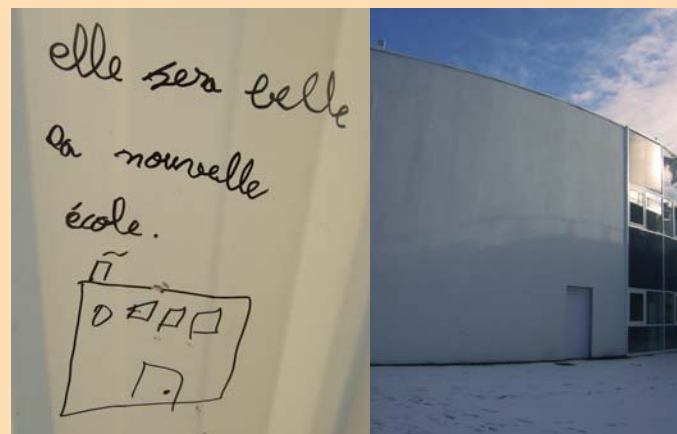 elle sera belle
la nouvelle
école.